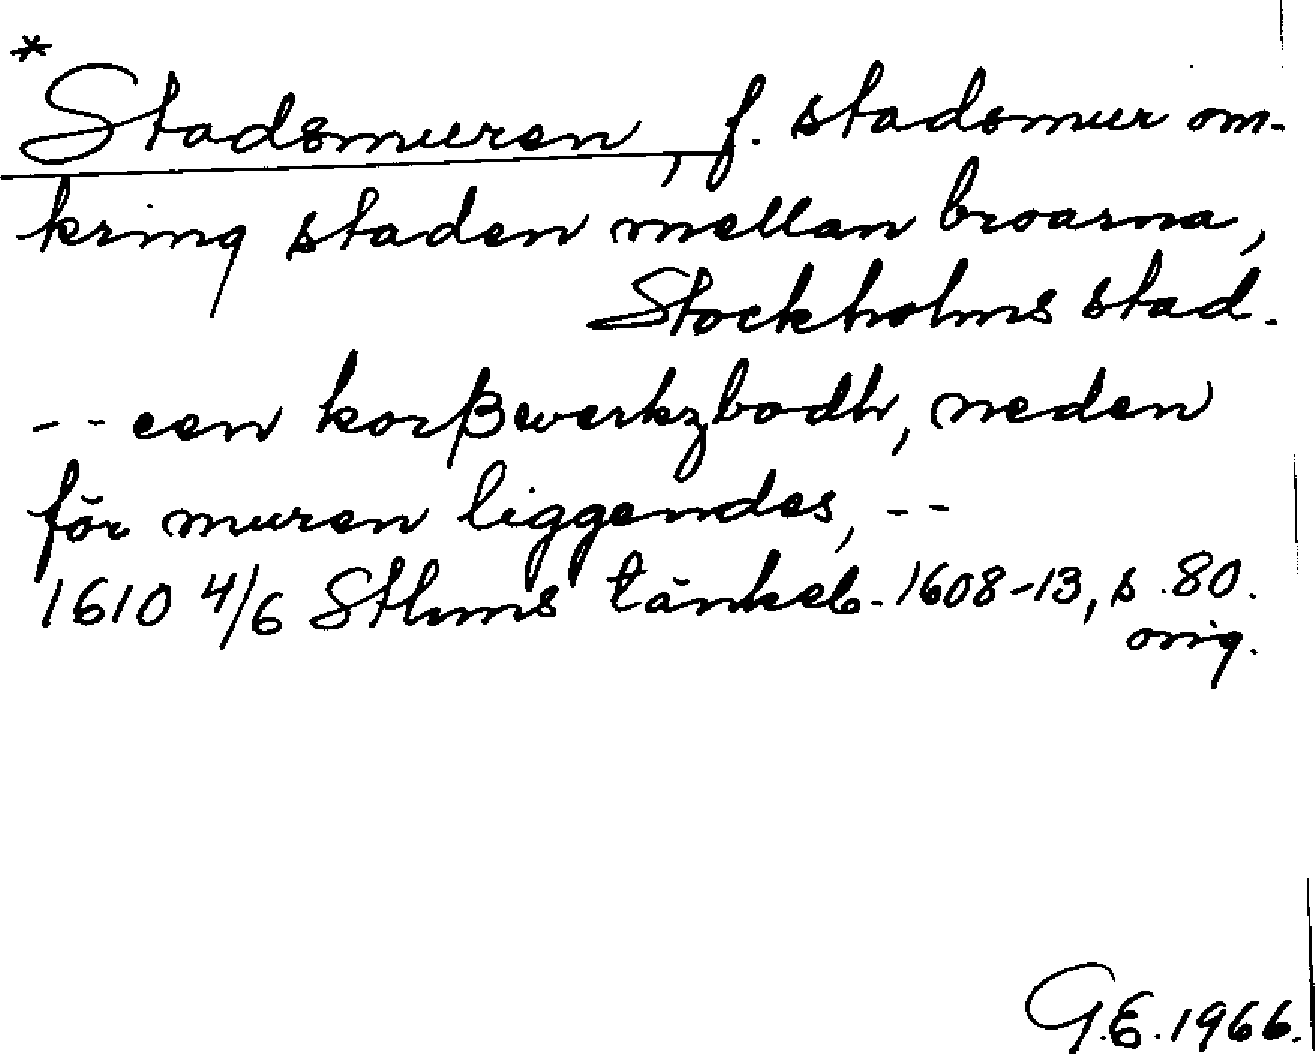 *
Stadsmuren, f. stadsmur om-
kring staden mellan broarna,
Stockholms stad.
-- een korßwerkzbodh, neden
för muren liggendes, --
1610 4/6 Sthms tänkeb. 1608-13, s. 80.
orig.
G.E. 1966.